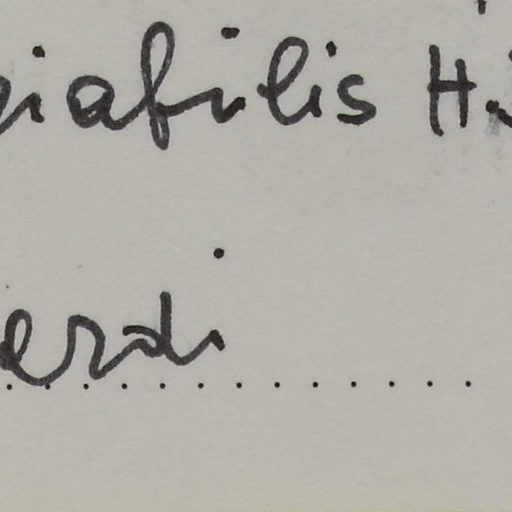 giabilis H.
erdi